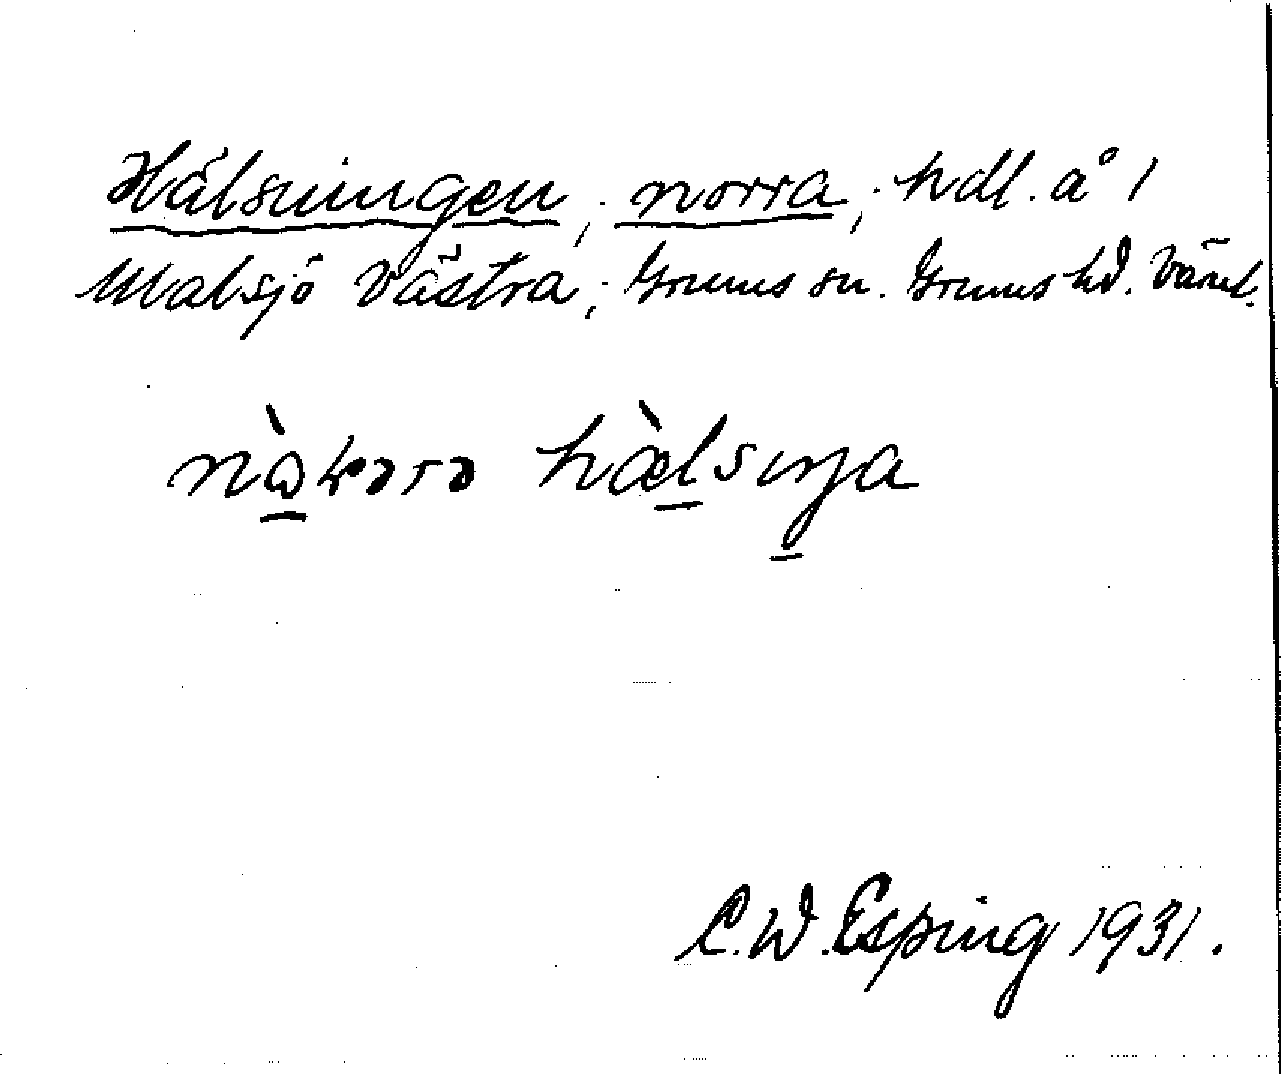 Hälsningen, norra, hdl. å 1
Malsjö Västra, Grums sn. Grums hd. Värml.
nò̱kərə hæ̀ḻsıŋ̱a
C.W. Esping 1931.